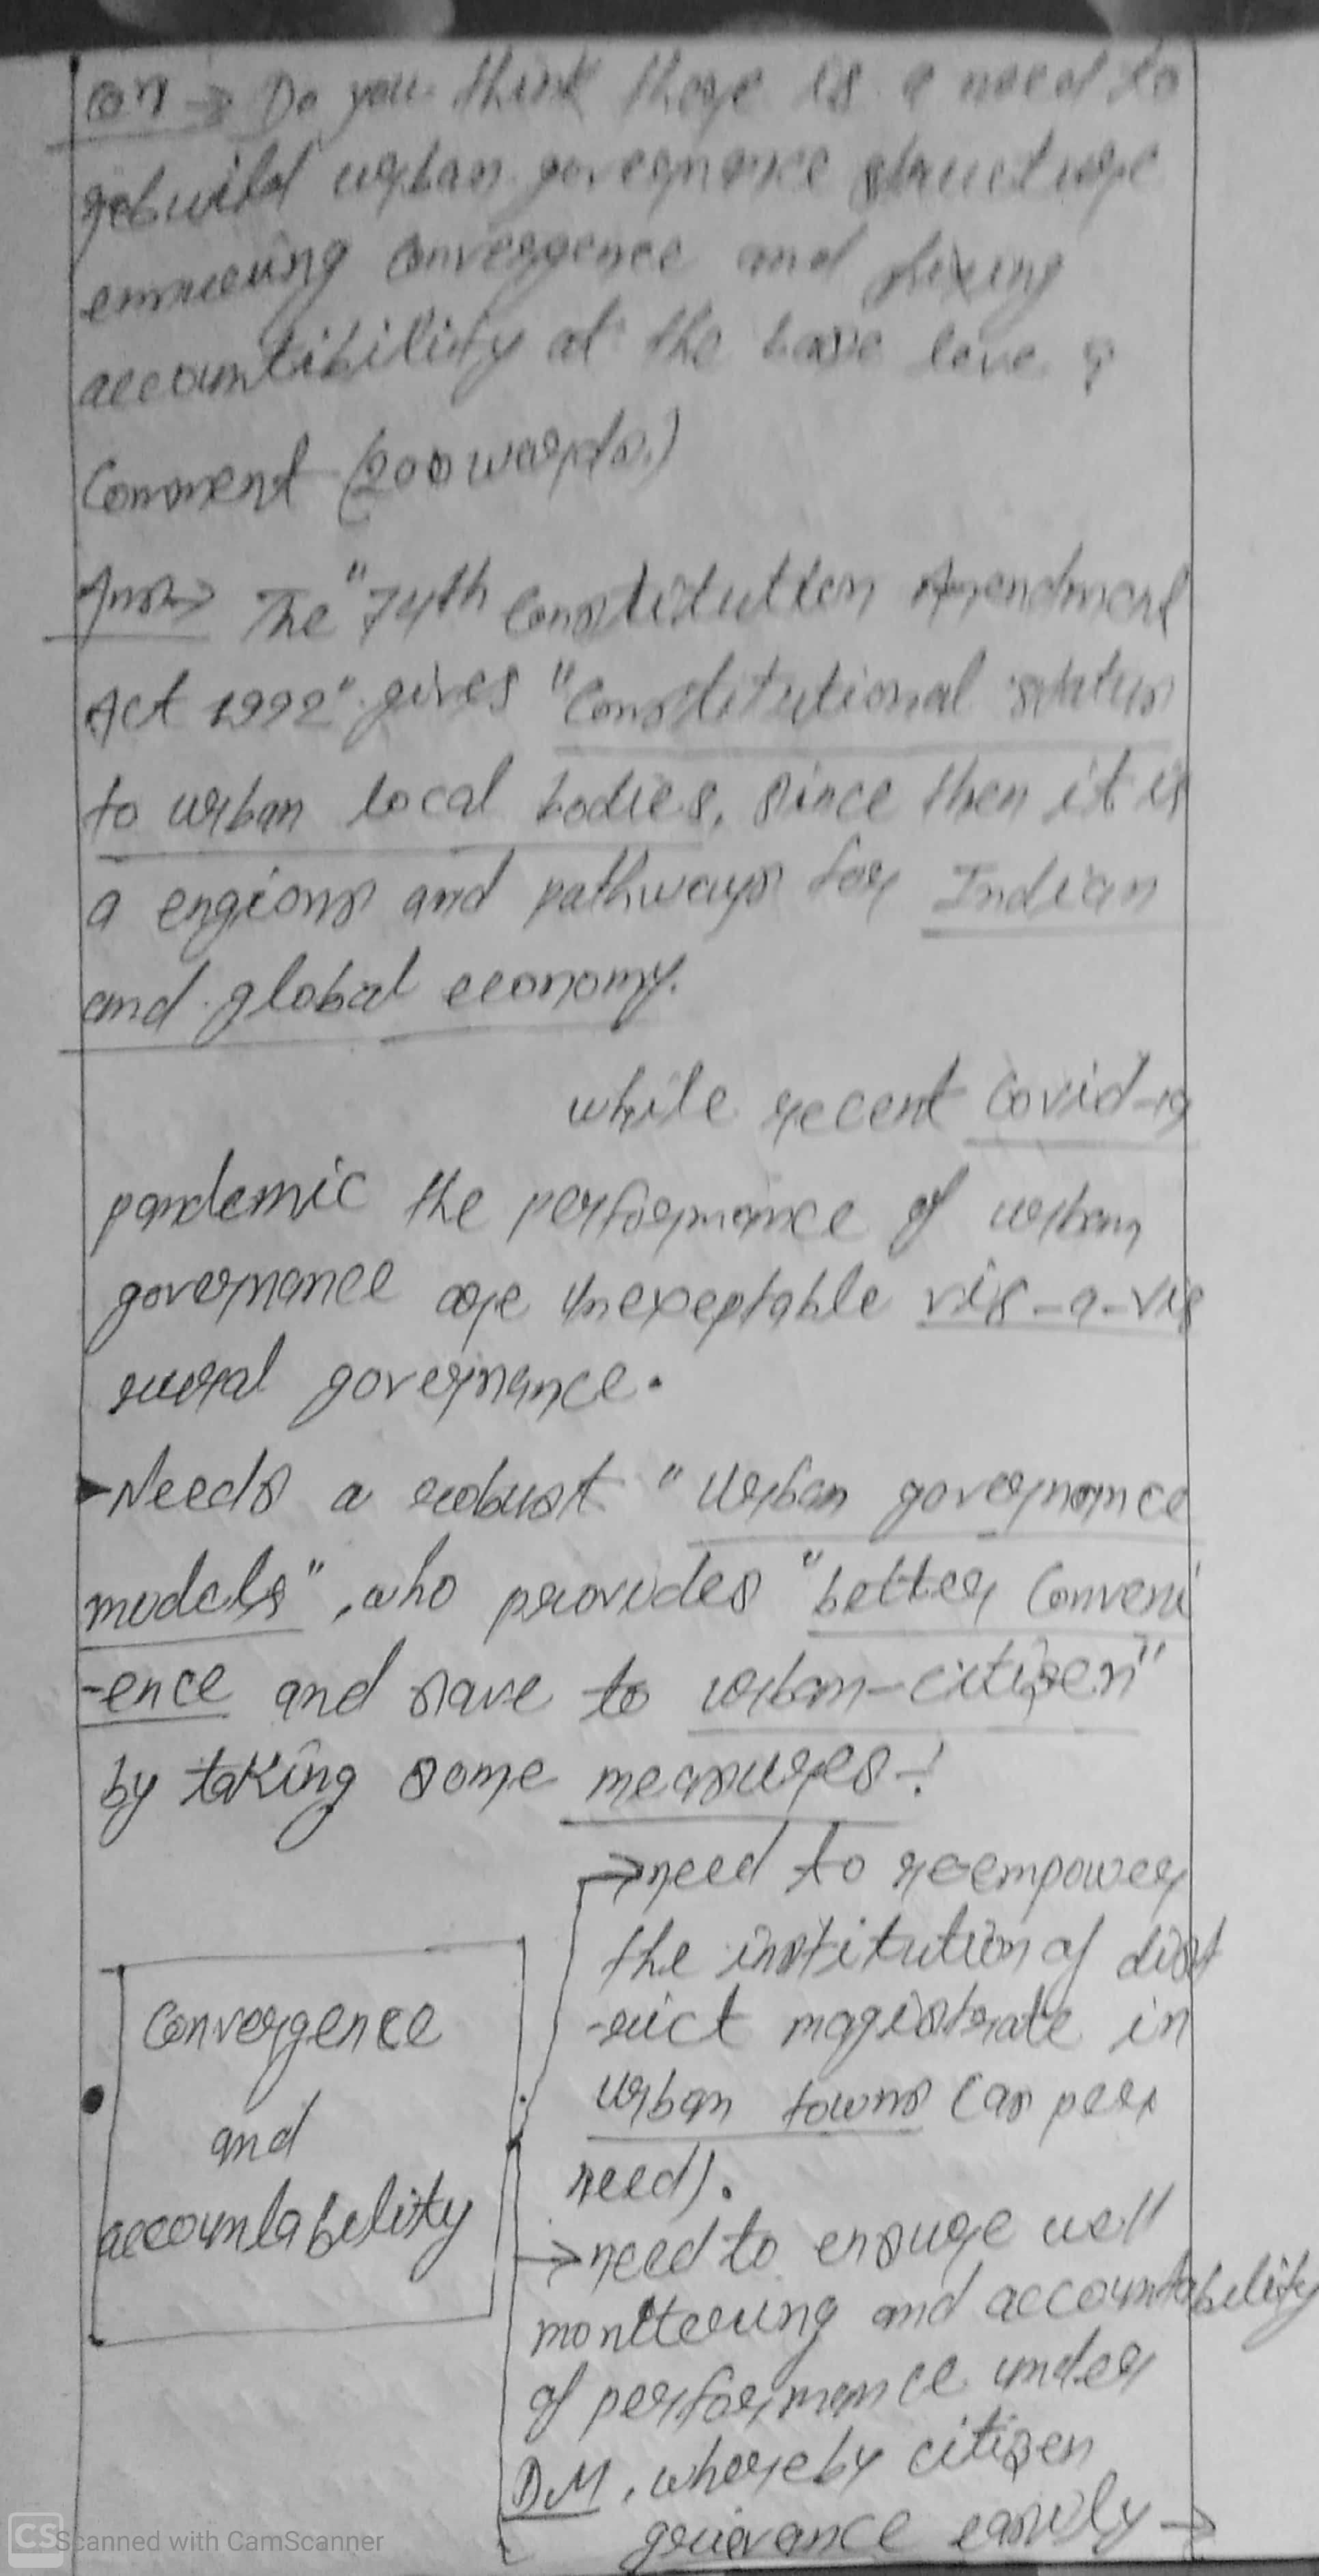 Qn → Do you think there is a need to
rebuild urban governance structure
ensureing convergence and fixing
accountibility at the base leve ?
Comment (200 words.)
Ans→ The "74th Constitution Amendment
Act 1992" gives "Constitutional status
to urban local bodies, since then it is
a engions and pathways for Indian
and global economy.
while recent Covid-19
pandemic the performance of urban
governance are Unexeptable vis-a-vis
rural governance.
Needs a robust "Urban governance
models", who provides "better Conveni
-ence and save to urban-citizen"
by taking some measures-:
→need to reempower
the institution of dist
-rict magistrate in
urban towns (as per
need).
Convergence
and
accountability
→need to ensure well
monitering and accountability
of performance under
DM, whereby citizen
grievance easily →
CS Scanned with CamScanner